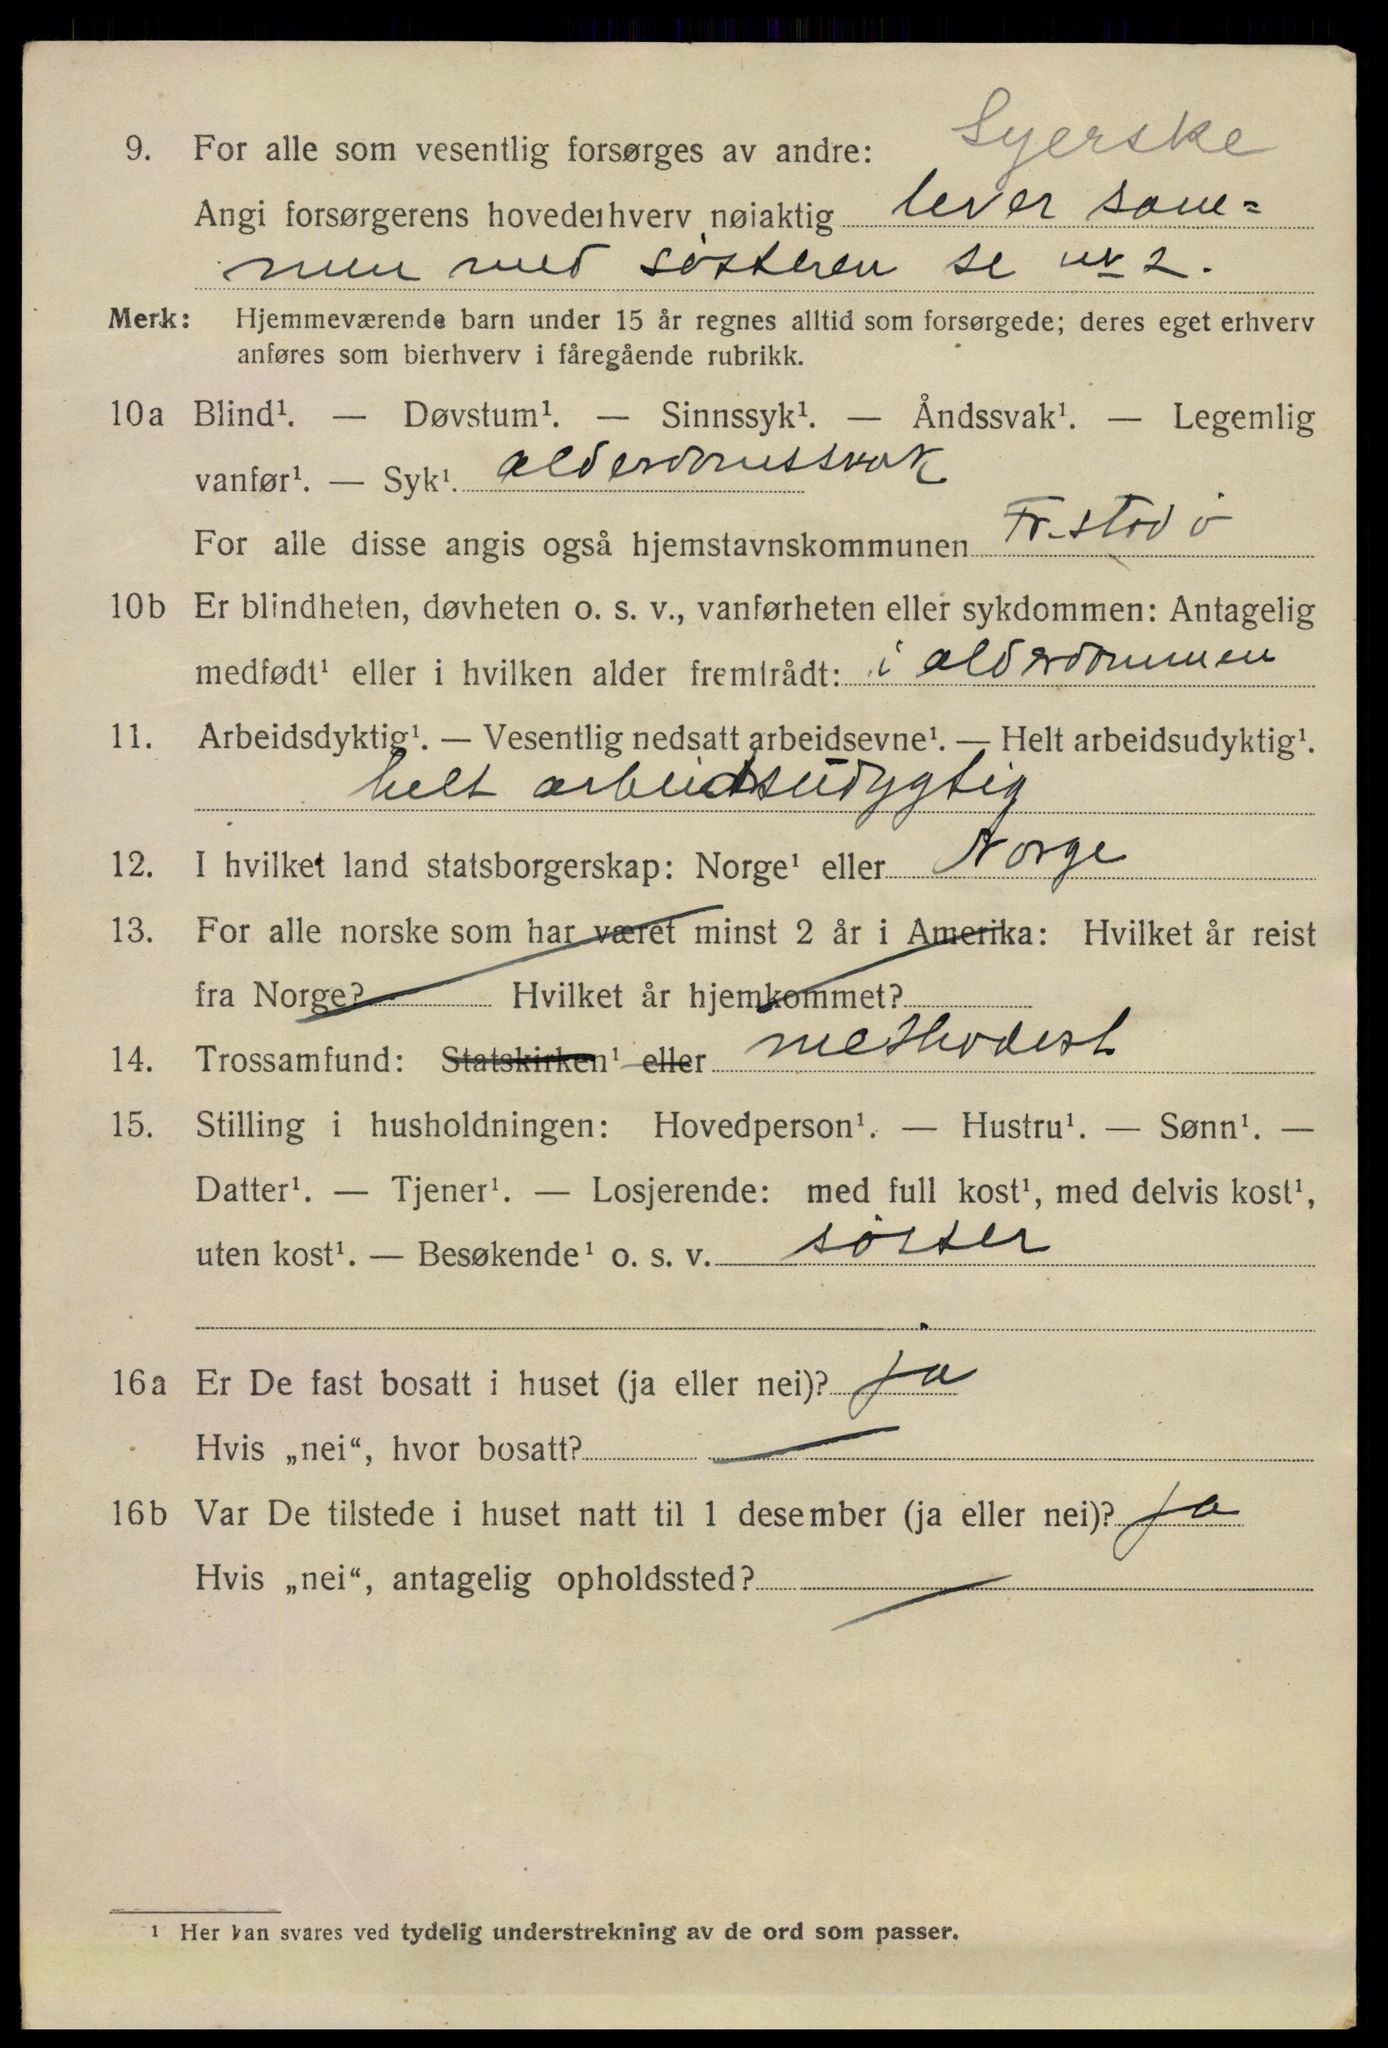 Syerske
9. For alle som vesentlig forsørges av andre:
Angi forsørgerens hovederhverv nøiaktig lever sam=
men med søsteren se nr 2.
Merk: Hjemmeværende barn under 15 år regnes alltid som forsørgede; deres eget erhverv
anføres som bierhverv i fåregående rubrikk.
10a Blind¹. — Døvstum¹. — Sinnssyk¹. — Åndssvak¹. — Legemlig
vanfør¹. — Syk¹. alderdomssvak
For alle disse angis også hjemstavnskommunen Fr.stad ö
10b Er blindheten, døvheten o. s. v., vanførheten eller sykdommen: Antagelig
medfødt¹ eller i hvilken alder fremtrådt: i alderdommen
11. Arbeidsdyktig¹. — Vesentlig nedsatt arbeidsevne¹. — Helt arbeidsudyktig¹.
helt arbeidsudygtig
12. I hvilket land statsborgerskap: Norge¹ eller Norge
13. For alle norske som har været minst 2 år i Amerika: Hvilket år reist
fra Norge? Hvilket år hjemkommet?
14. Trossamfund: Statskirken¹ eller methodist
15. Stilling i husholdningen: Hovedperson¹. — Hustru¹. — Sønn¹. —
Datter¹. — Tjener¹. — Losjerende: med full kost¹, med delvis kost¹,
uten kost¹. — Besøkende¹ o. s. v. søster
16a Er De fast bosatt i huset (ja eller nei)? ja
Hvis „nei“, hvor bosatt?
16b Var De tilstede i huset natt til 1 desember (ja eller nei)? ja
Hvis „nei“, antagelig opholdssted?
¹ Her kan svares ved tydelig understrekning av de ord som passer.